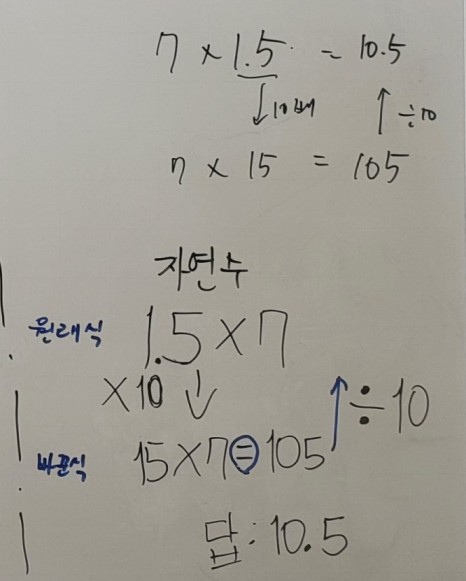 7 × 1.5 = 10.5
↓ 10배 ↑ ÷10
7 × 15 = 105
자연수
원래식 1.5 × 7
×10 ↓ ↑ ÷10
바꾼식 15 × 7 = 105
답: 10.5